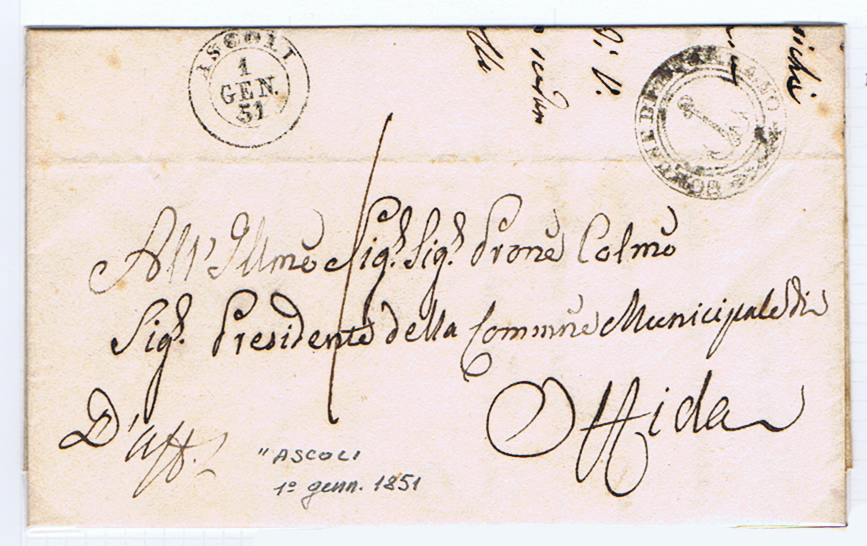 ASCOLI
1
GEN.
51
All'Illmo Sigr. Sigr. Prone Colmo
Sigr. Presidente della Commne Municipale di
Offida
D'Aff.
"ASCOLI
1º genn. 1851